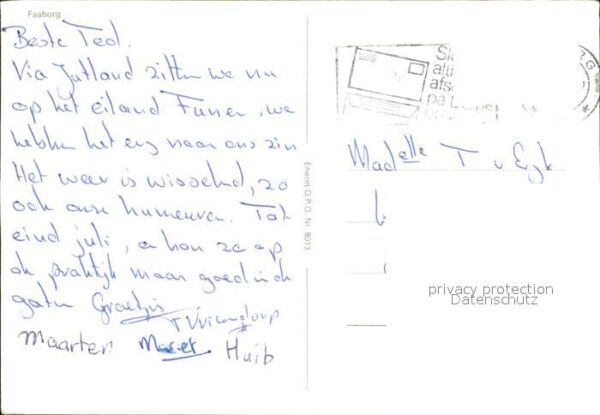 Faaborg
Beste Ted.
Via Jutland zitten we nu
op het eiland Funen, we
hebben het erg naar ons zin
Het weer is wisselend, zo
ook onze humeuren. Tot
eind juli, en hou ze op
de praktijk maar goed in de
gaten Groetjes
Maarten Huib
Eneret O.P.O. Nr. 8013
Sk
alti
afs
på
Madelle T v Eyk
privacy protection
Datenschutz